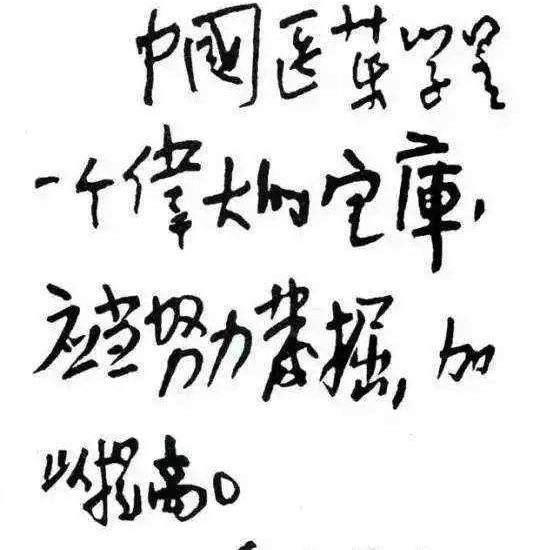 中國医药学是
一个偉大的宝庫，
应当努力发掘，加
以提高。